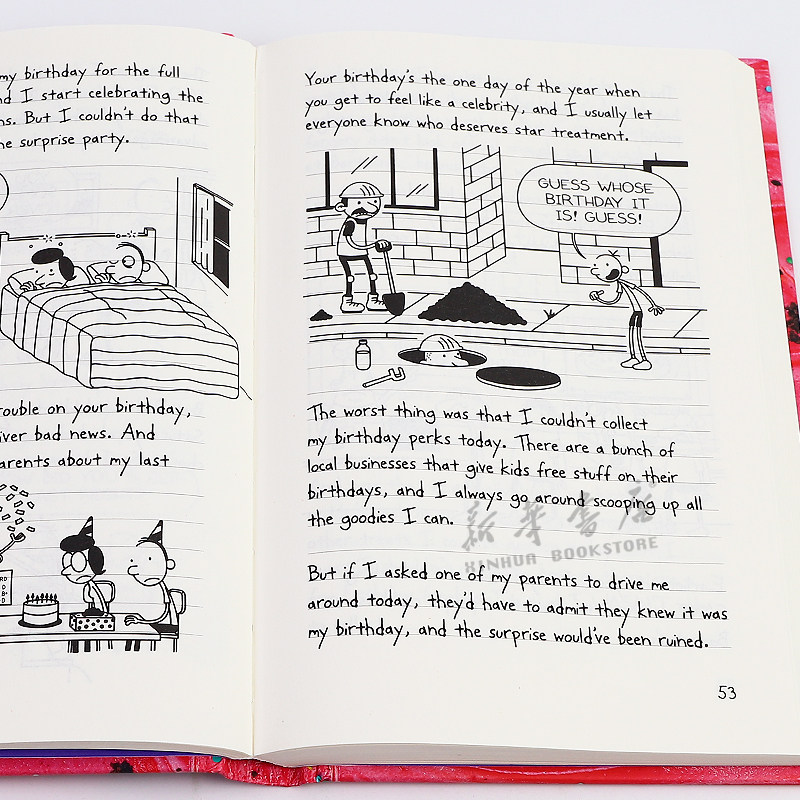 my birthday for the full
I start celebrating the
But I couldn't do that
surprise party.
rouble on your birthday,
iver bad news. And
arents about my last
Your birthday's the one day of the year when
you get to feel like a celebrity, and I usually let
everyone know who deserves star treatment.
GUESS WHOSE
BIRTHDAY IT
IS! GUESS!
The worst thing was that I couldn't collect
my birthday perks today. There are a bunch of
local businesses that give kids free stuff on their
birthdays, and I always go around scooping up all
the goodies I can.
新华书店
XINHUA BOOKSTORE
But if I asked one of my parents to drive me
around today, they'd have to admit they knew it was
my birthday, and the surprise would've been ruined.
53